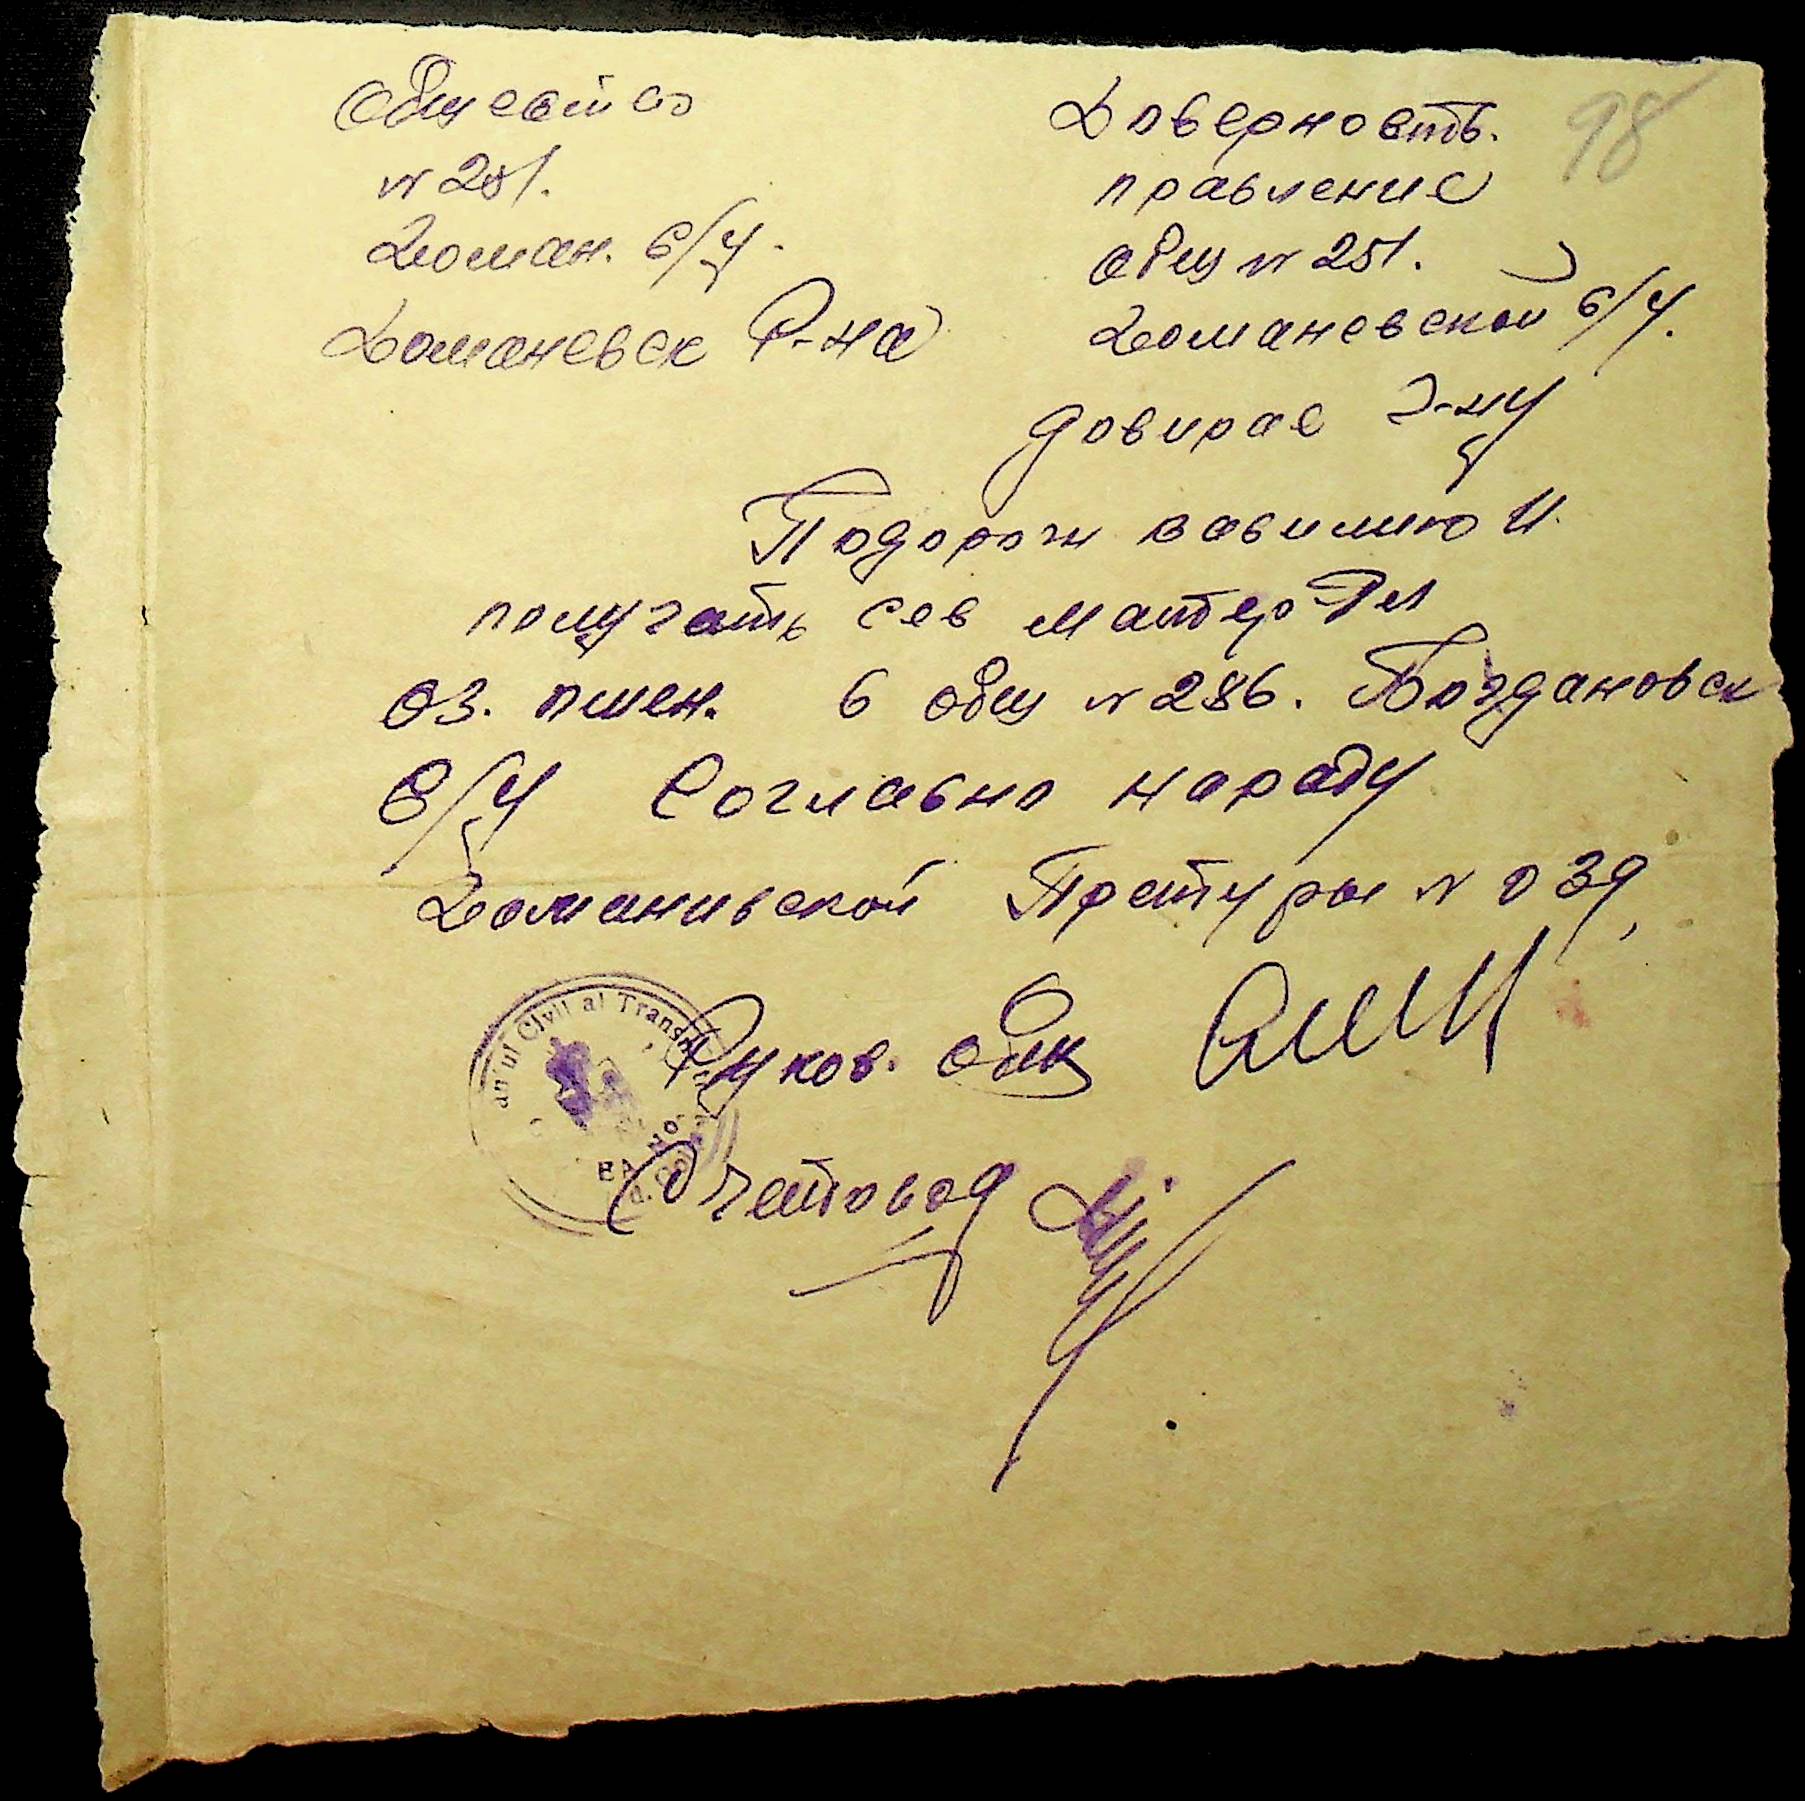 98
Общество
№ 251.
Доман. с/у.
Доманевск Р-на
Доверность.
правление
общ № 251.
Доманевской с/у.
довирае г-ну
Подорож вавилию И
получать сев матер
оз. пшен. в общ № 286. Богдановск
с/у Согласно нараду
Доманивской Претуры № 039,
Руков. общ
Счетовод
Civil al Trans